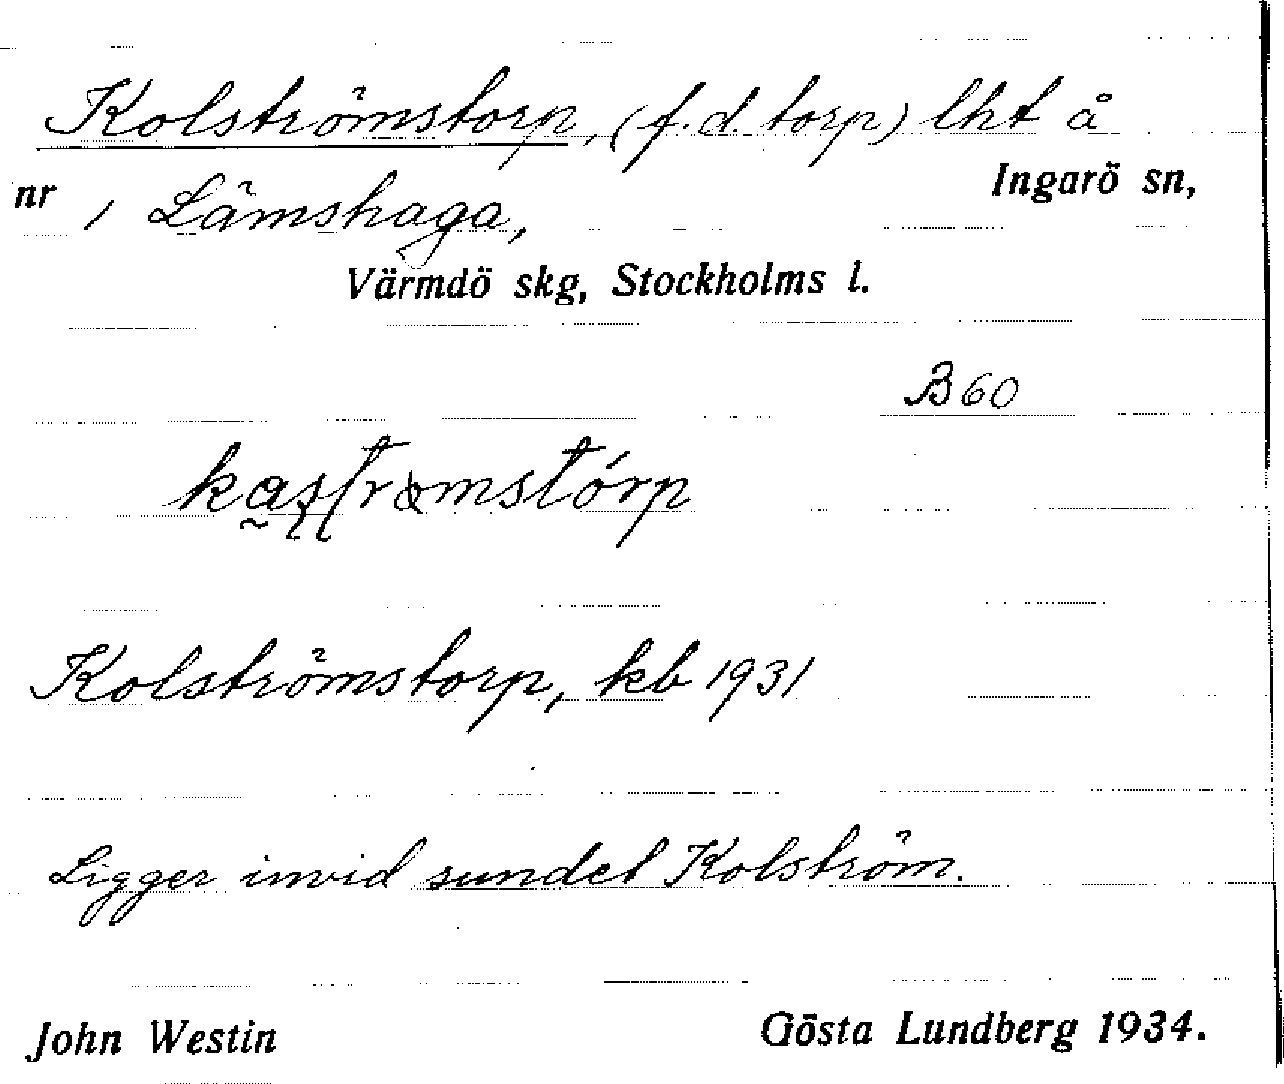 Kolströmstorp, (f.d. torp) lht å
nr 1 Lämshaga, Ingarö sn,
Värmdö skg, Stockholms l.
B60
Kolströmstorp, kb 1931
Ligger invid sundet Kolström.
John Westin Gösta Lundberg 1934.